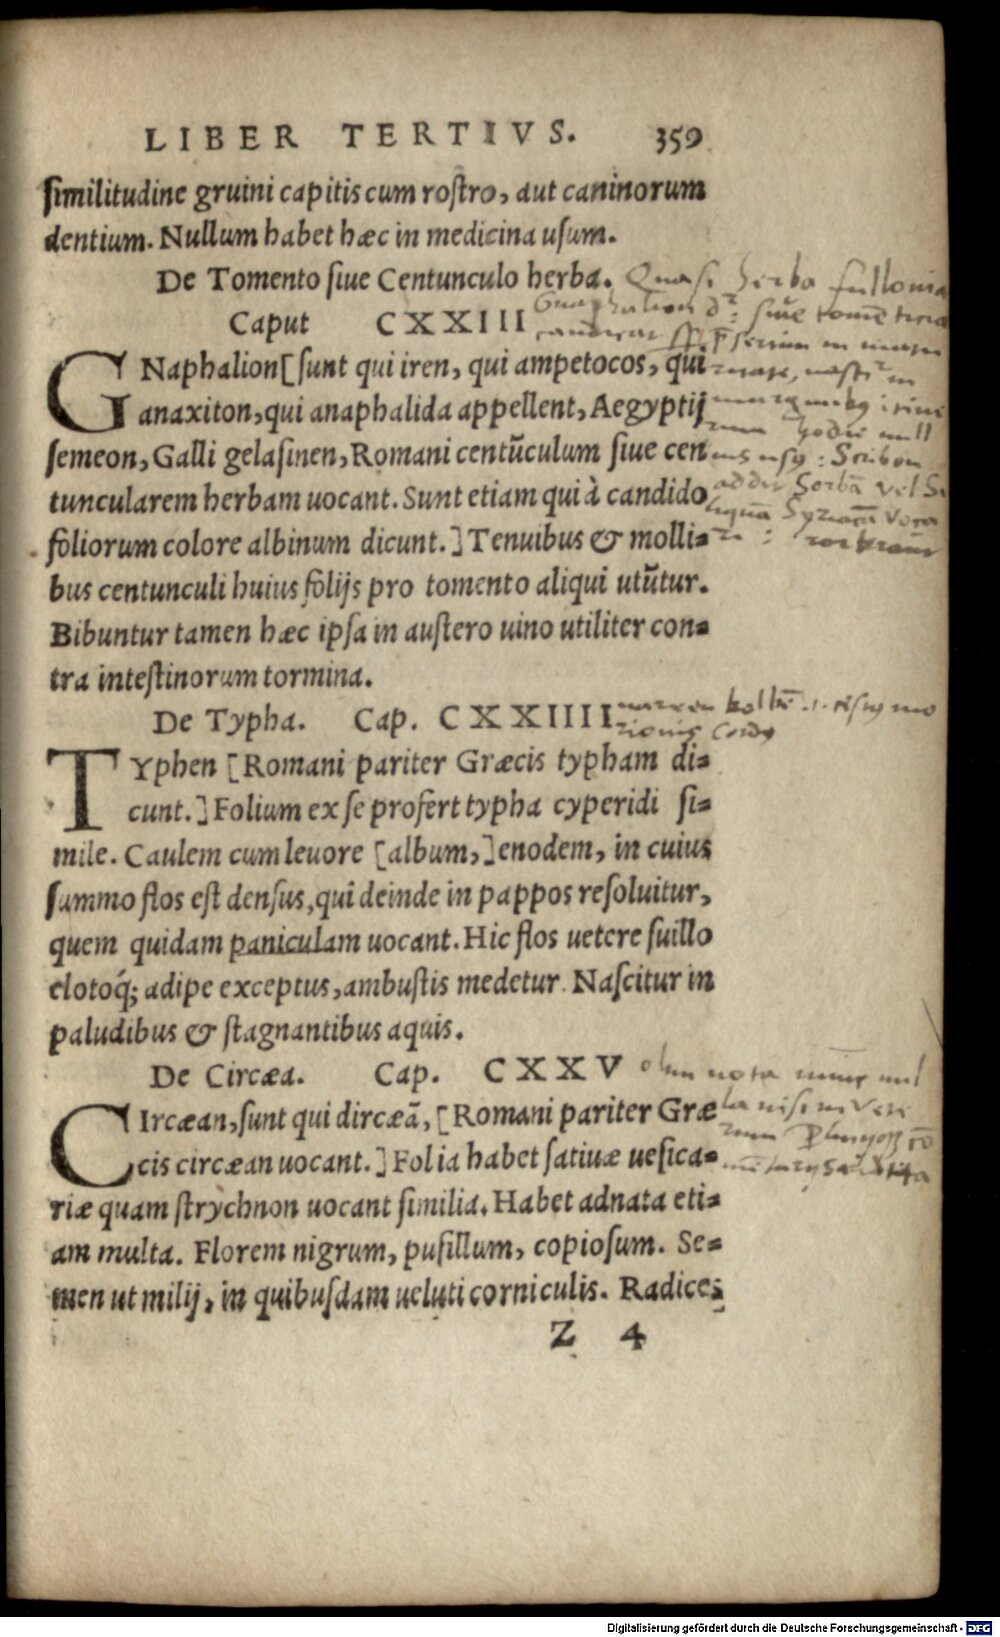 LIBER TERTIVS. 359
similitudine gruini capitis cum rostro, aut caninorum
dentium. Nullum habet hæc in medicina usum.
De Tomento siue Centunculo herba.
Quasi herba fullonia
Caput CXXIII
GNaphalion [sunt qui iren, qui ampetocos, qui
anaxiton, qui anaphalida appellent, Aegyptij
semeon, Galli gelasinen, Romani centũculum siue cen
tuncularem herbam uocant. Sunt etiam qui à candido
foliorum colore albinum dicunt.] Tenuibus & molli=
bus centunculi huius folijs pro tomento aliqui utũtur.
Bibuntur tamen hæc ipsa in austero uino utiliter con=
tra intestinorum tormina.
De Typha. Cap. CXXIIII
TYphen [Romani pariter Græcis typham di=
cunt.] Folium ex se profert typha cyperidi si=
mile. Caulem cum leuore [album,] enodem, in cuius
summo flos est densus, qui deinde in pappos resoluitur,
quem quidam paniculam uocant. Hic flos uetere suillo
elotoq́; adipe exceptus, ambustis medetur. Nascitur in
paludibus & stagnantibus aquis.
De Circæa. Cap. CXXV
CIrcæan, sunt qui dircæã, [Romani pariter Græ
cis circæan uocant.] Folia habet satiuæ uesica=
riæ quam strychnon uocant similia. Habet adnata eti=
am multa. Florem nigrum, pusillum, copiosum. Se=
men ut milij, in quibusdam ueluti corniculis. Radices
Z 4
Digitalisierung gefördert durch die Deutsche Forschungsgemeinschaft - DFG